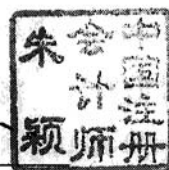 中国注册
会计师
朱颖